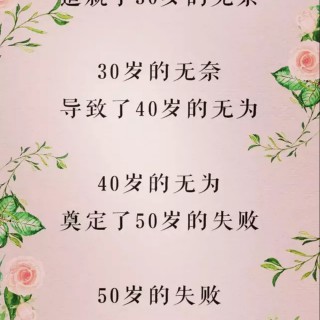 造就了30岁的无奈
30岁的无奈
导致了40岁的无为
40岁的无为
奠定了50岁的失败
50岁的失败